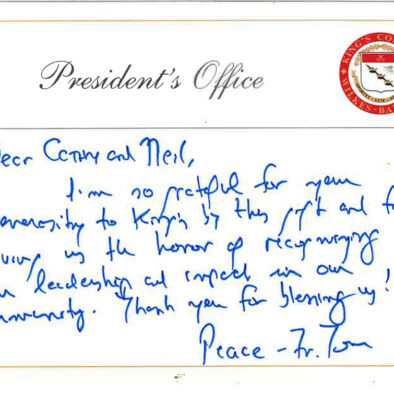 President's Office
KING'S CO
WILKES-BA
ear Cathy and Neil,
I am so grateful for your
enerosity to King's by this gift and f
iving us the honor of recognizing
leadership and impact in our
mmunity. Thank you for blessing us!
Peace - Fr. Tom